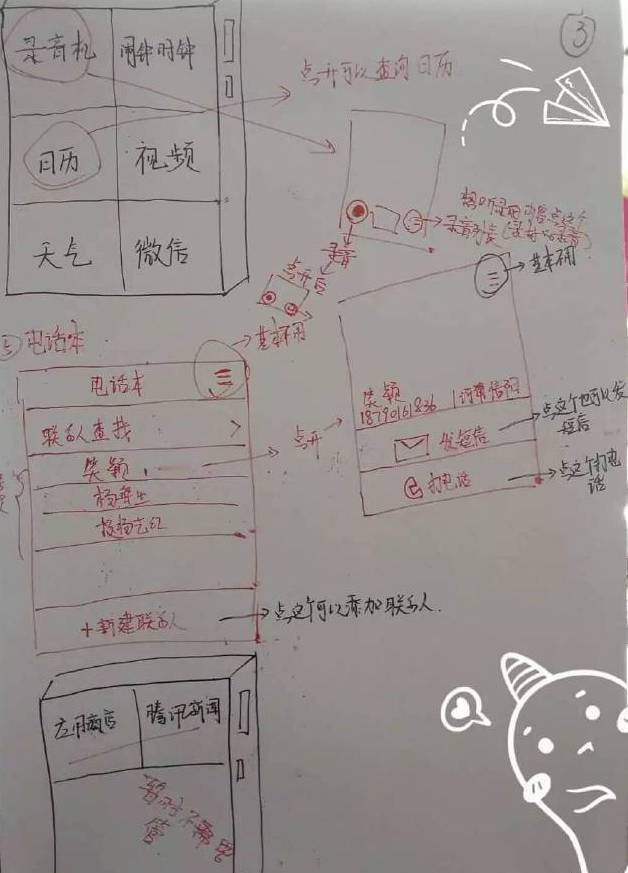 ③
录音机
闹钟时钟
日历
视频
天气
微信
点开可以查询日历
想听录的内容点这个
录音列表
录音
点开后
基本不用
电话本
基本不用
电话本
联系人查找
笑颖
点开
+新建联系人
点这个可以添加联系人.
笑颖
18790161836
河南信阳
发短信
点这个也可以发
短信
打电话
点这个打电
话
应用商店
腾讯新闻
暂时不需要
管